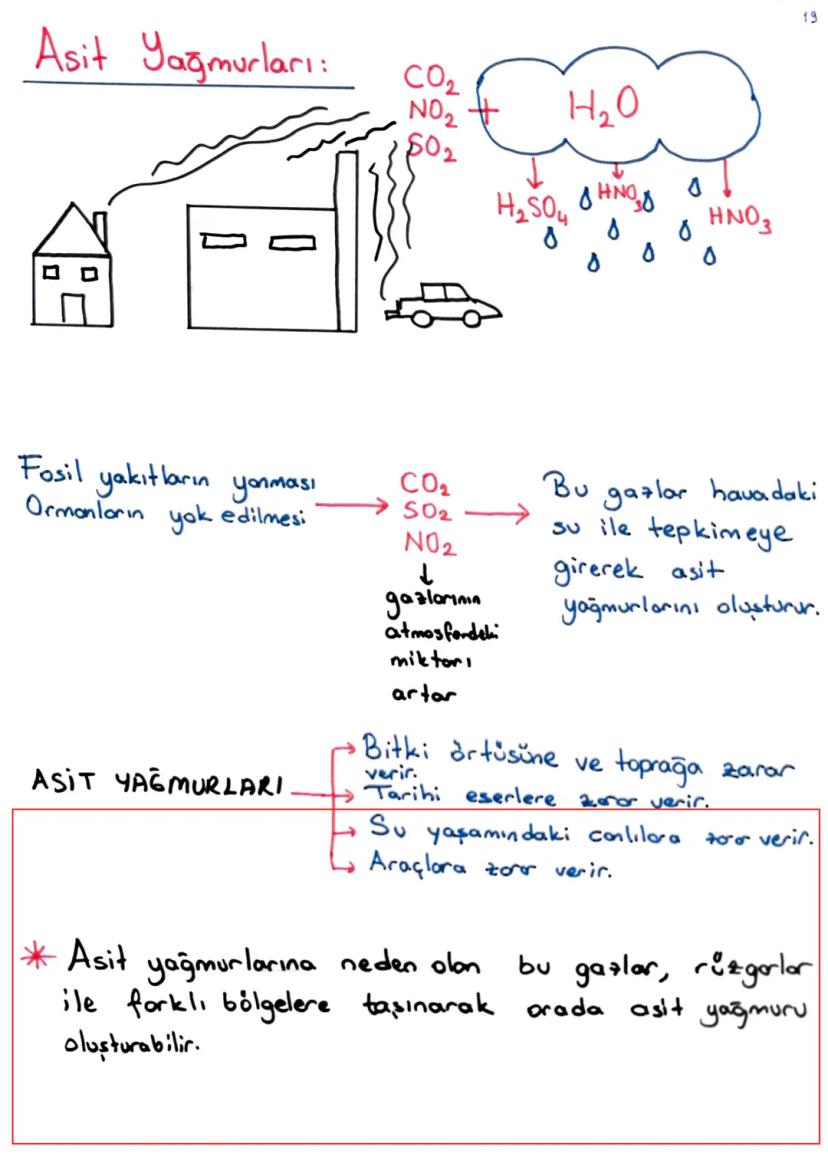 19
Asit Yağmurları:
CO₂
NO₂ +
SO₂
H₂O
H₂SO₄
HNO₃
HNO₃
Fosil yakıtların yanması
Ormanların yok edilmesi
CO₂
SO₂
NO₂
gazlarının
atmosferdeki
miktarı
artar
Bu gazlar havadaki
su ile tepkimeye
girerek asit
yağmurlarını oluşturur.
ASİT YAĞMURLARI
Bitki örtüsüne ve toprağa zarar
verir.
Tarihi eserlere zarar verir.
Su yaşamındaki canlılara zarar verir.
Araçlara zarar verir.
* Asit yağmurlarına neden olan bu gazlar, rüzgarlar
ile farklı bölgelere taşınarak orada asit yağmuru
oluşturabilir.